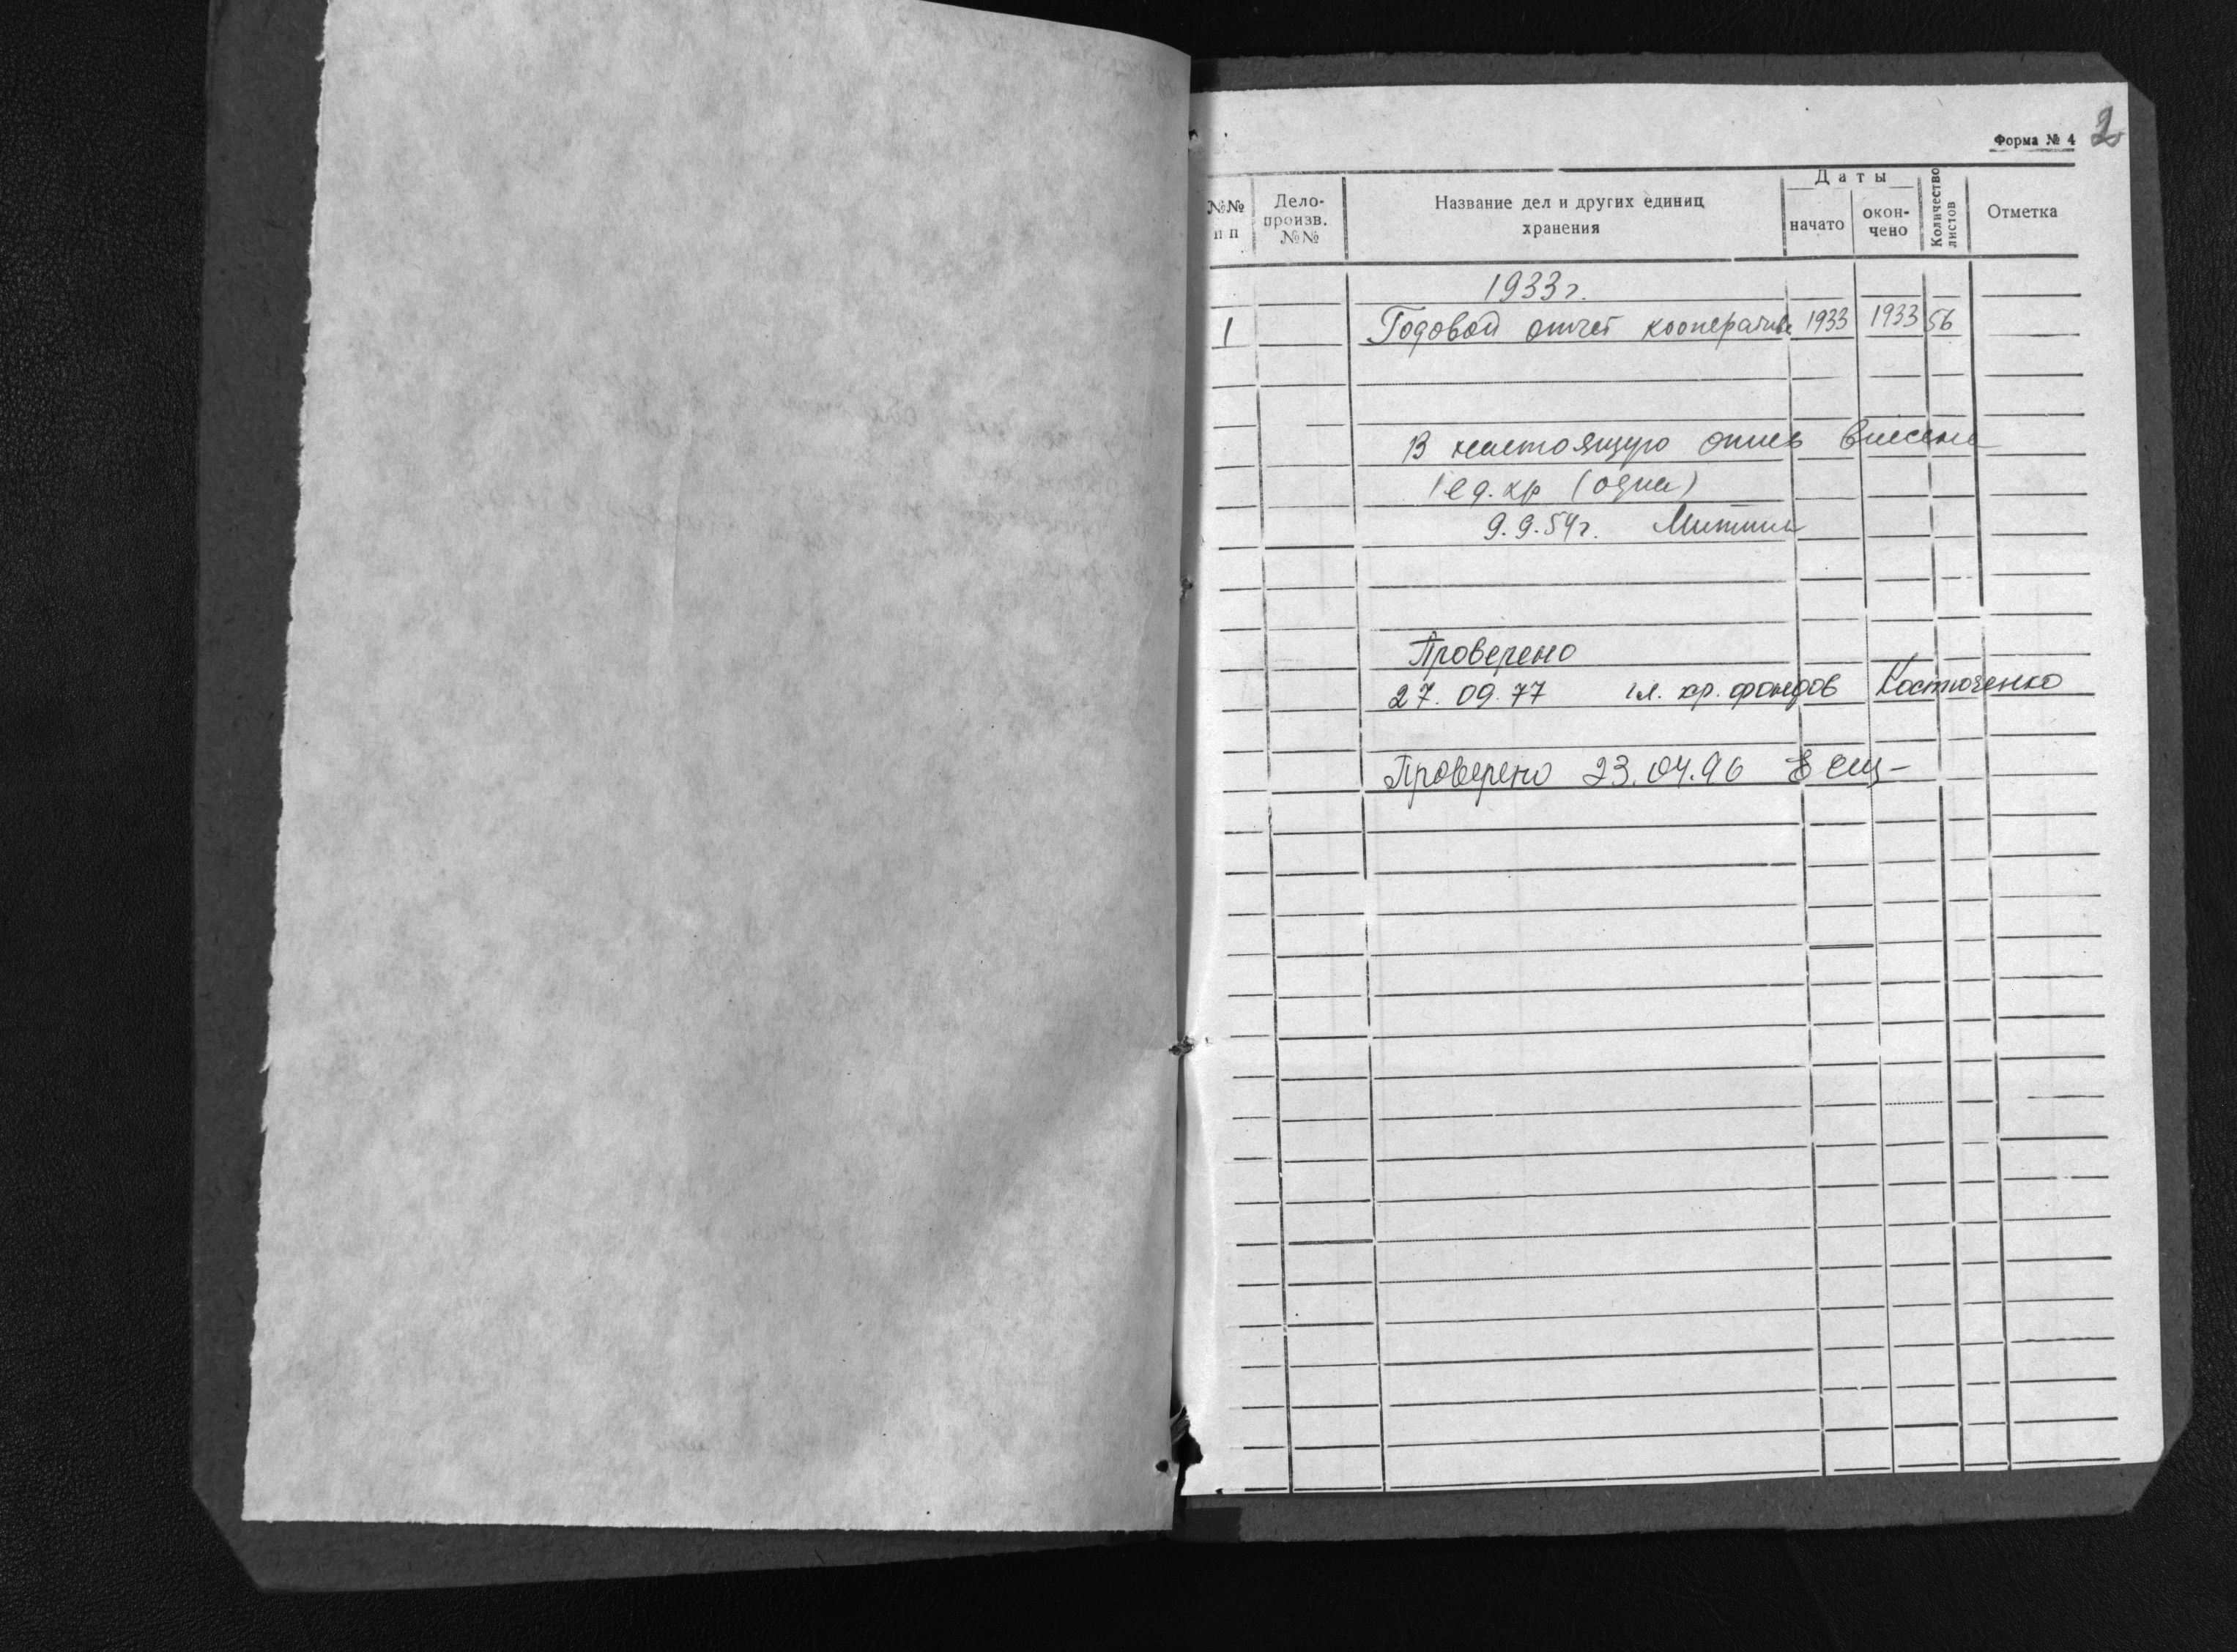 2
Форма № 4
№№ п п
Дело-
произв.
№№
Название дел и других единиц
хранения
Даты
начато
окон-
чено
Количество
листов
Отметка
1933 г.
1 Годовой отчет кооператива 1933 1933 56
В настоящую опись внесена
1 ед. хр (одна)
9.9.54 г.
Проверено
27.09.77 гл. хр. фондов Костюченко
Проверено 23.04.96